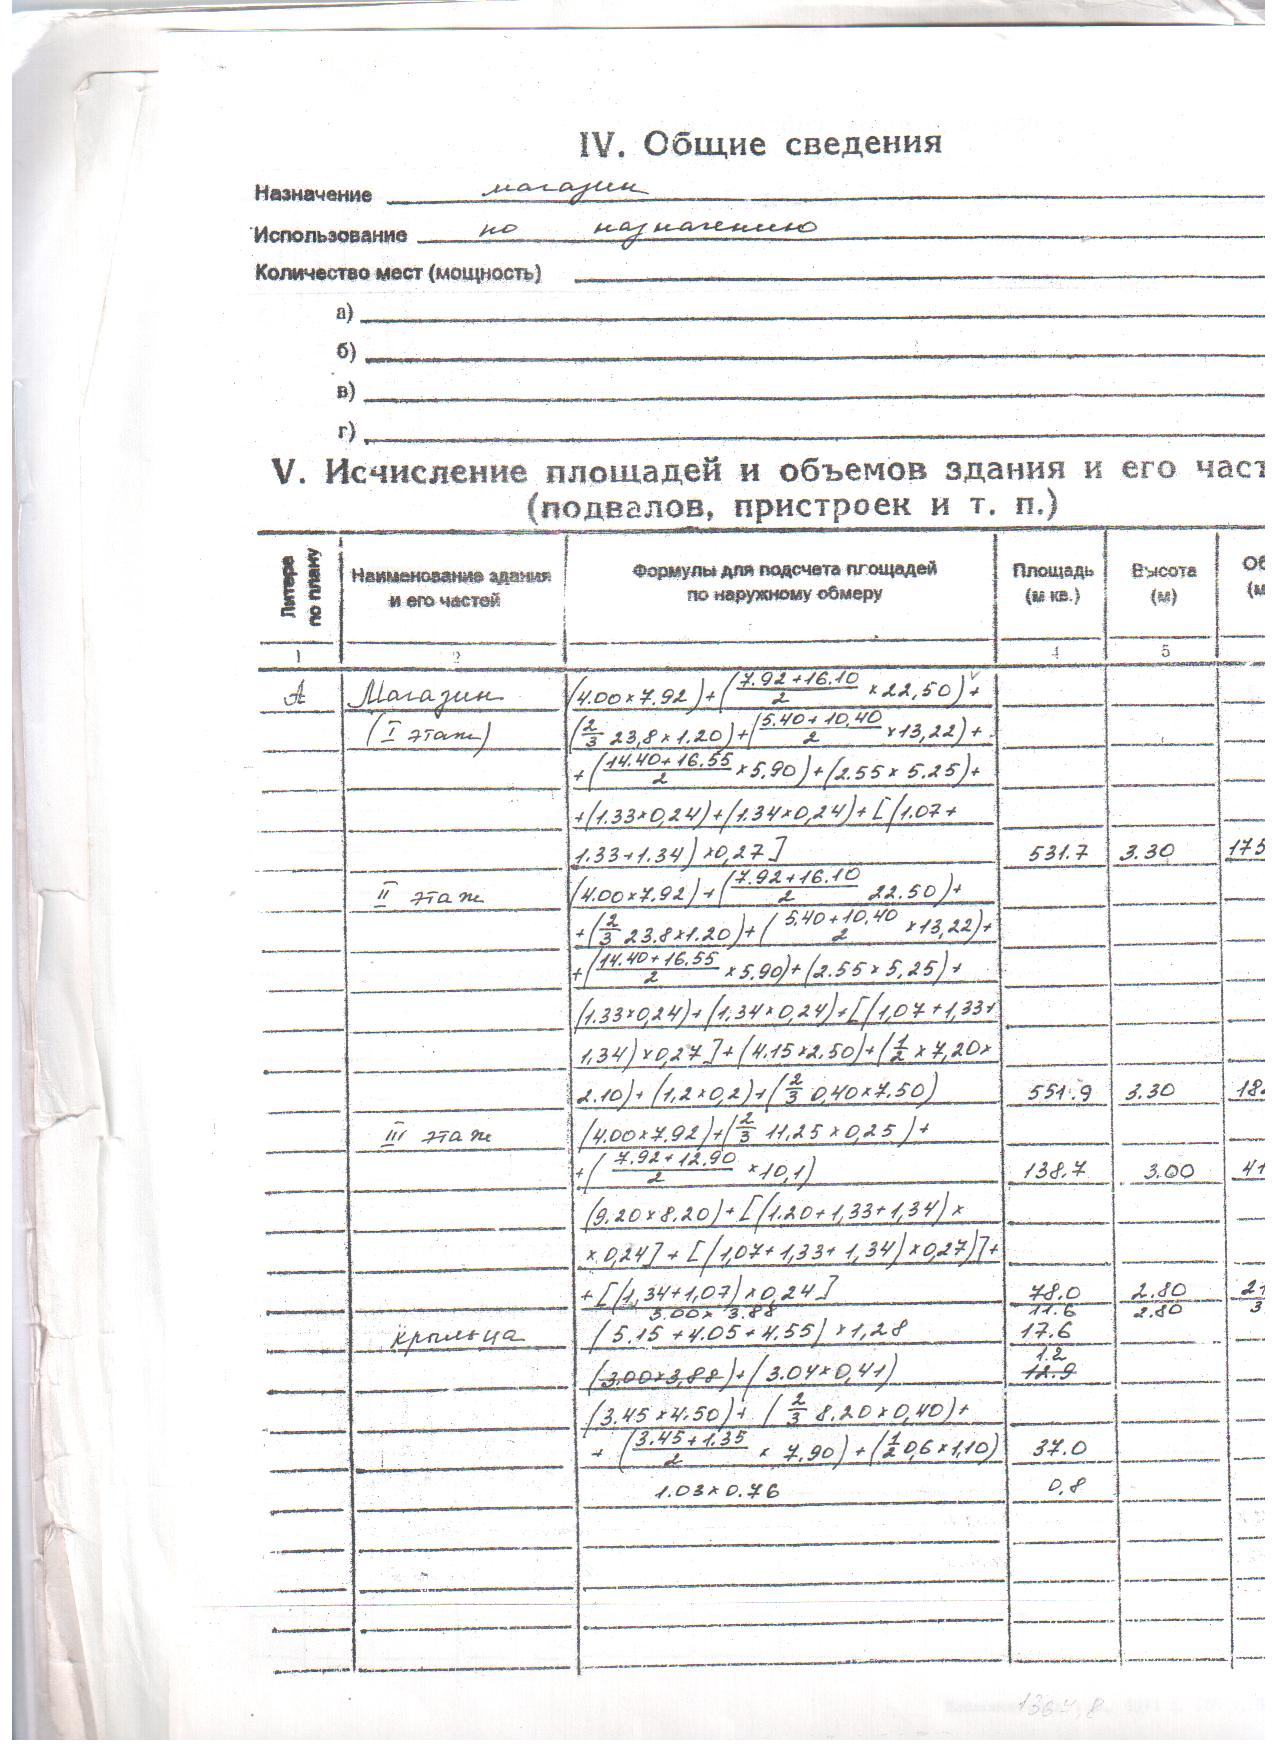 IV. Общие сведения
Назначение магазин
Использование по назначению
Количество мест (мощность)
а)
б)
в)
г)
V. Исчисление площадей и объемов здания и его част
(подвалов, пристроек и т. п.)
Литера по плану
Наименование здания и его частей
Формулы для подсчета площадей по наружному обмеру
Площадь (м кв.)
Высота (м)
Об (м
1 2 4 5
А Магазин (4.00×7.92)+(7.92+16.10/2 ×22,50)+
(I этаж) (2/3 23,8×1.20)+(5.40+10,40/2 ×13,22)+
+(14.40+16.55/2 ×5.90)+(2.55×5.25)+
+(1.33×0,24)+(1.34×0,24)+[(1.07+
1.33+1.34)×0,27] 531.7 3.30 175
II этаж (4.00×7.92)+(7.92+16.10/2 22.50)+
+(2/3 23.8×1.20)+(5,40+10,40/2 ×13,22)+
+(14.40+16.55/2 ×5.90)+(2.55×5,25)+
(1.33×0,24)+(1,34×0,24)+[(1,07+1,33+
1,34)×0,27]+(4.15×2.50)+(1/2×7,20×
2.10)+(1,2×0,2)+(2/3 0,40×7.50) 551.9 3.30 182
III этаж (4.00×7.92)+(2/3 11,25×0,25)+
+(7.92+12.90/2 ×10,1) 138.7 3.00 41
(9.20×8.20)+[(1.20+1,33+1,34)×
×0,24]+[(1,07+1,33+1,34)×0,27)]+
+[(1,34+1,07)×0,24] 78.0 2.80 21
3.00×3.88 11.6 2.80 3
крыльца (5.15+4.05+4.55)×1,28 17.6
(3.00×3,88)+(3.04×0,41) 1.2 12.9
(3.45×4.50)+(2/3 8.20×0,40)+
+(3.45+1.35/2 × 7,90)+(1/2 0,6×1,10) 37.0
1.03×0.76 0,8
1367,8